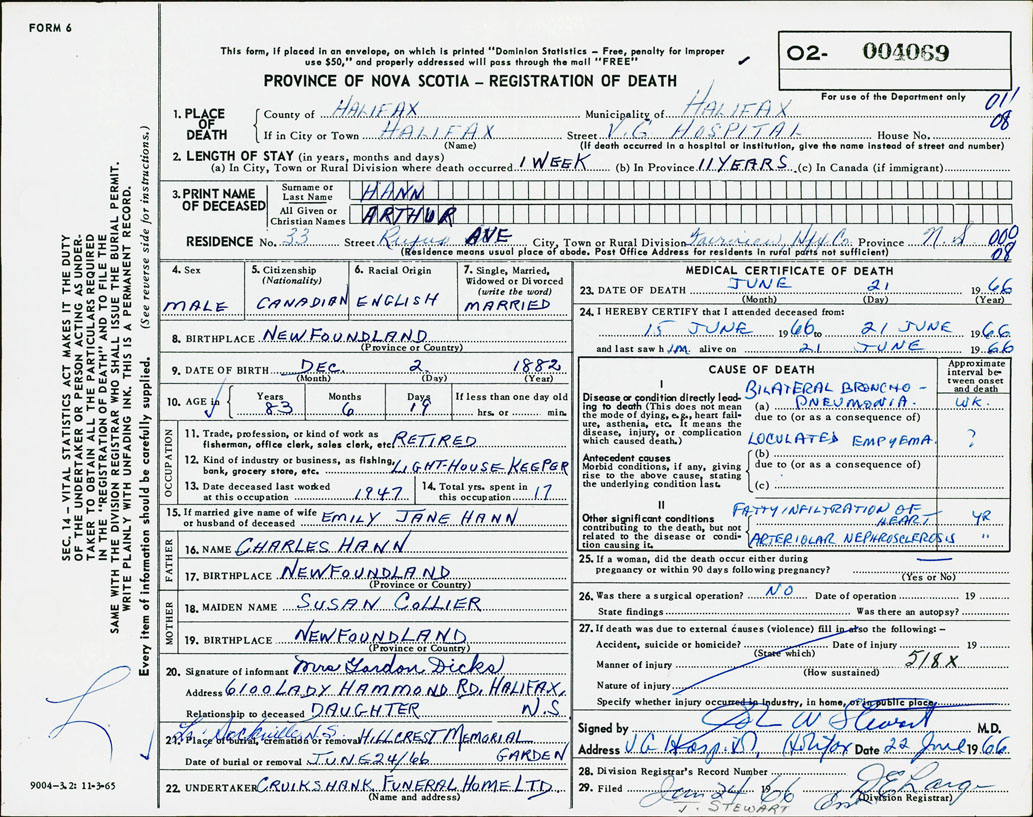 FORM 6
This form, if placed in an envelope, on which is printed "Dominion Statistics – Free, penalty for improper
use $50," and properly addressed will pass through the mail "FREE"
✓
O2- 004069
PROVINCE OF NOVA SCOTIA – REGISTRATION OF DEATH
For use of the Department only
011
08
1. PLACE OF DEATH
County of HALIFAX Municipality of HALIFAX
If in City or Town HALIFAX Street V.G HOSPITAL House No.
(Name) (If death occurred in a hospital or institution, give the name instead of street and number)
2. LENGTH OF STAY (in years, months and days)
(a) In City, Town or Rural Division where death occurred 1 WEEK (b) In Province 11 YEARS (c) In Canada (if immigrant)
3. PRINT NAME OF DECEASED
Surname or Last Name HANN
All Given or Christian Names ARTHUR
RESIDENCE No. 33 Street Rufus AVE City, Town or Rural Division Fairview, Hfx Co. Province N.S 000
08
(Residence means usual place of abode. Post Office Address for residents in rural parts not sufficient)
4. Sex MALE
5. Citizenship (Nationality) CANADIAN
6. Racial Origin ENGLISH
7. Single, Married, Widowed or Divorced (write the word) MARRIED
8. BIRTHPLACE NEWFOUNDLAND
(Province or Country)
9. DATE OF BIRTH DEC. 2 1882
(Month) (Day) (Year)
10. AGE in Years 83 Months 6 Days 19 If less than one day old hrs. or min.
OCCUPATION
11. Trade, profession, or kind of work as
fisherman, office clerk, sales clerk, etc. RETIRED
12. Kind of industry or business, as fishing,
bank, grocery store, etc. LIGHT-HOUSE KEEPER
13. Date deceased last worked at this occupation 1947
14. Total yrs. spent in this occupation 17
15. If married give name of wife
or husband of deceased EMILY JANE HANN
FATHER
16. NAME CHARLES HANN
17. BIRTHPLACE NEWFOUNDLAND
(Province or Country)
MOTHER
18. MAIDEN NAME SUSAN COLLIER
19. BIRTHPLACE NEWFOUNDLAND
(Province or Country)
20. Signature of informant Mrs Gordon Dicks
Address 6100 LADY HAMMOND RD, HALIFAX,
Relationship to deceased DAUGHTER N.S.
Sackville N.S.
21. Place of burial, cremation or removal HILLCREST MEMORIAL
Date of burial or removal JUNE 24/66 GARDEN
22. UNDERTAKER CRUIKSHANK FUNERAL HOME LTD.
(Name and address)
MEDICAL CERTIFICATE OF DEATH
23. DATE OF DEATH JUNE 21 1966
(Month) (Day) (Year)
24. I HEREBY CERTIFY that I attended deceased from:
15 JUNE 1966 to 21 JUNE 1966
and last saw him alive on 21 JUNE 1966
CAUSE OF DEATH
Approximate interval between onset and death
I
Disease or condition directly leading to death (This does not mean the mode of dying, e.g., heart failure, asthenia, etc. It means the disease, injury, or complication which caused death.)
BILATERAL BRONCHO-
(a) PNEUMONIA. WK.
due to (or as a consequence of)
LOCULATED EMPYEMA. ?
Antecedent causes
Morbid conditions, if any, giving rise to the above cause, stating the underlying condition last.
(b)
due to (or as a consequence of)
(c)
II
Other significant conditions
contributing to the death, but not related to the disease or condition causing it.
FATTY INFILTRATION OF
HEART YR
ARTERIOLAR NEPHROSCLEROSIS "
25. If a woman, did the death occur either during
pregnancy or within 90 days following pregnancy? —
(Yes or No)
26. Was there a surgical operation? NO Date of operation 19
State findings Was there an autopsy?
27. If death was due to external causes (violence) fill in also the following: –
Accident, suicide or homicide? Date of injury 19
(State which)
Manner of injury 518X
(How sustained)
Nature of injury
Specify whether injury occurred in industry, in home, or in public place
Signed by W Stewart M.D.
Address V.G. Hospital, Halifax Date 22 June 1966
28. Division Registrar's Record Number
29. Filed June 24 1966
J. STEWART
(Division Registrar)
SEC. 14 – VITAL STATISTICS ACT MAKES IT THE DUTY
OF THE UNDERTAKER OR PERSON ACTING AS UNDER-
TAKER TO OBTAIN ALL THE PARTICULARS REQUIRED
IN THE "REGISTRATION OF DEATH" AND TO FILE THE
SAME WITH THE DIVISION REGISTRAR WHO SHALL ISSUE THE BURIAL PERMIT.
WRITE PLAINLY WITH UNFADING INK. THIS IS A PERMANENT RECORD.
Every item of information should be carefully supplied. (See reverse side for instructions.)
9004-3.2: 11-3-65